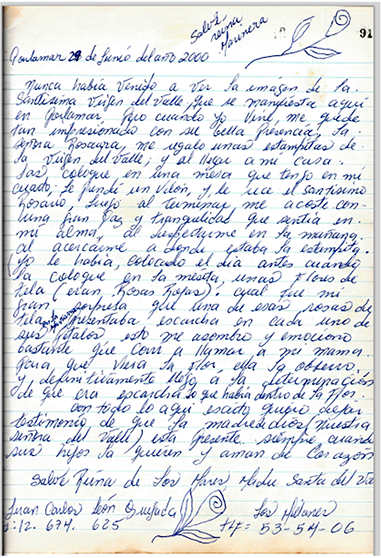 Salve
reyna
Marinera
91
Porlamar 29 de Junio del año 2000
Nunca había venido a ver la imagen de la
Santísima Virgen del Valle, que se manifiesta aquí
en Porlamar. Pero cuando yo vine, me quede
tan impresionado con su bella presencia, la
señora Rosaura, me regalo unas estampitas de
la Virgen del Valle; y al llegar a mi casa.
las coloque en una mesa que tengo en mi
cuarto, le prendí un velón, y le rece el santísimo
Rosario, luego al terminar, me acoste con
una gran Paz y tranquilidad que sentía en
mi alma, al despertarme en la mañana.
al acercarme a donde estaba la estampita.
(yo le había, colocado el día antes cuando
la coloque en la mesita, unas flores de
tela (eran Rosas Rojas). cual fue mi
gran sorpresa que una de esas rosas de
tela presentaba escarcha en cada uno de
sus petalos, esto me asombro y emociono
bastante que corrí a llamar a mi mama.
para que viera la flor, ella la observo,
y definitivamente llego a la determinación
de que era escarcha lo que había dentro de la flor.
con todo lo aquí escrito quiero dejar
testimonio de que la madre de dios (Nuestra
señora del Valle) esta presente siempre, cuando
sus hijos la quieren y aman de Corazón
Salve Reina de los Mares, Madre Santa del Valle
Juan Carlos León Quijada Los Millanes
12. 674. 625 Tlf: 53-54-06